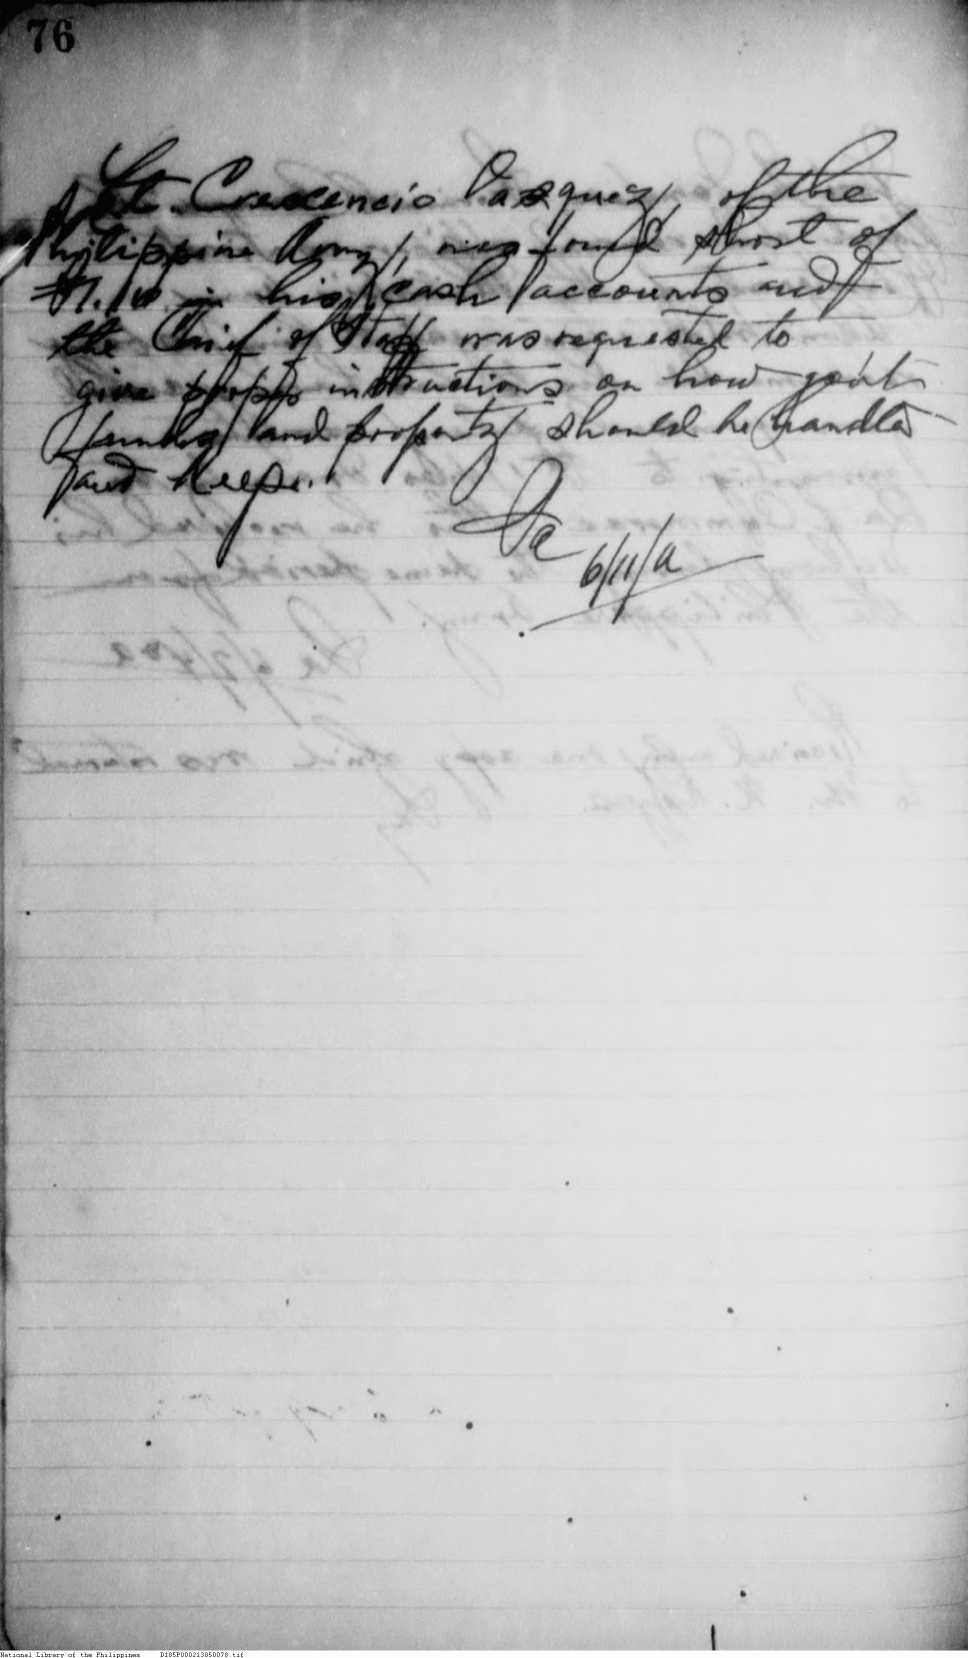 76
Lt. Crescencio Vasquez, of the
Philippine Army, was found short of
in his cash accounts and
the Chief of Staff was requested to
give proper instructions on how gov't
funds and property should be handled
and kept.
6/11/
National Library of the Philippines D185P000213050078.tif